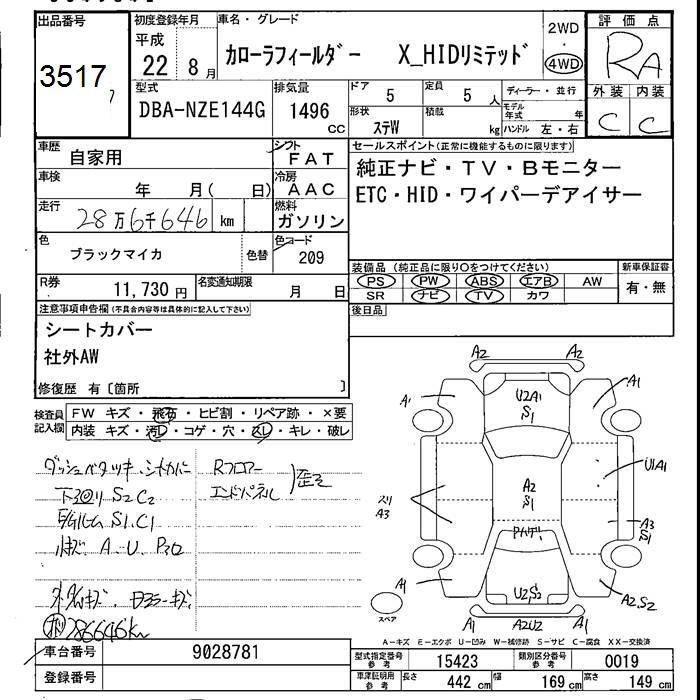 出品番号
3517
7
初度登録年月
平成
22 8月
車名・グレード
カローラフィールダー X_HIDリミテッド
2WD
・
4WD
評価点
RA
外装 内装
C C
型式
DBA-NZE144G
排気量
1496
CC
ドア
5
定員
5 人
ディーラー・並行
モデル年式 年
形状
ステW
積載
kg
ハンドル 左・右
車歴
自家用
シフト
FAT
車検
年 月( 日)
冷房
AAC
走行
28万6千646 km
燃料
ガソリン
色
ブラックマイカ
色替
色コード
209
R券
11,730 円
名変通知期限
月 日
セールスポイント(正常に機能するものに限ります)
純正ナビ・TV・Bモニター
ETC・HID・ワイパーデアイサー
装備品 (純正品に限り○をつけてください)
新車保証書
PS PW ABS エアB AW
SR ナビ TV カワ
有・無
後日品
注意事項申告欄(不具合内容等は具体的に記入して下さい)
シートカバー
社外AW
修復歴 有〔箇所 〕
検査員記入欄
FW キズ・飛石・ヒビ割・リペア跡・×要
内装 キズ・汚レ・コゲ・穴・スレ・キレ・破レ
ダッシュベタツキ・シートカバー
下回り S2C2
S1.C1
A.U.P30
286646km
Rフロアー
エンドパネル
歪ミ
A2 A2
A1 U2A1 A1
S1
U1A1
A2
S1
スリ
A3
A3
S1
A1 U2S2 A2.S2
A1 A2U2 A1
スペア
A-キズ E-エクボ U-凹み W-補修跡 S-サビ C-腐食 XX-交換済
車台番号
9028781
登録番号
型式指定番号
参考
15423
類別区分番号
参考
0019
車庫証明用
参考
長さ 442 cm 幅 169 cm 高さ 149 cm